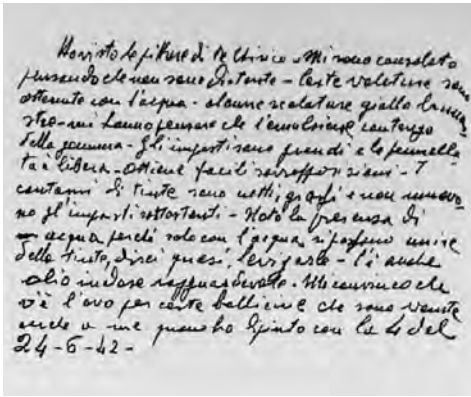 Ho visto le pitture di De Chirico. Mi sono consolato
pensando che non sono distante - Certe velature sono
ottenute con l'acqua - alcune scolature giallo
stre - mi hanno pensare che l'emulsione contenga
della gomma - Gli impasti sono grandi e la pennella
ta è libera - ottiene facili sovrapposizioni - I
contorni di tinte sono netti, e non muovo
no gl'impasti sottostanti - Noto la presenza di
acqua perché solo con l'acqua si possono unire
delle tinte, direi quasi, levigarle - C'è anche
olio in dose ragguardevole - Mi convinco che
v'è l'uovo per certe bollicine che sono venute
anche a me quando ho dipinto con la 4 del
24-6-42-